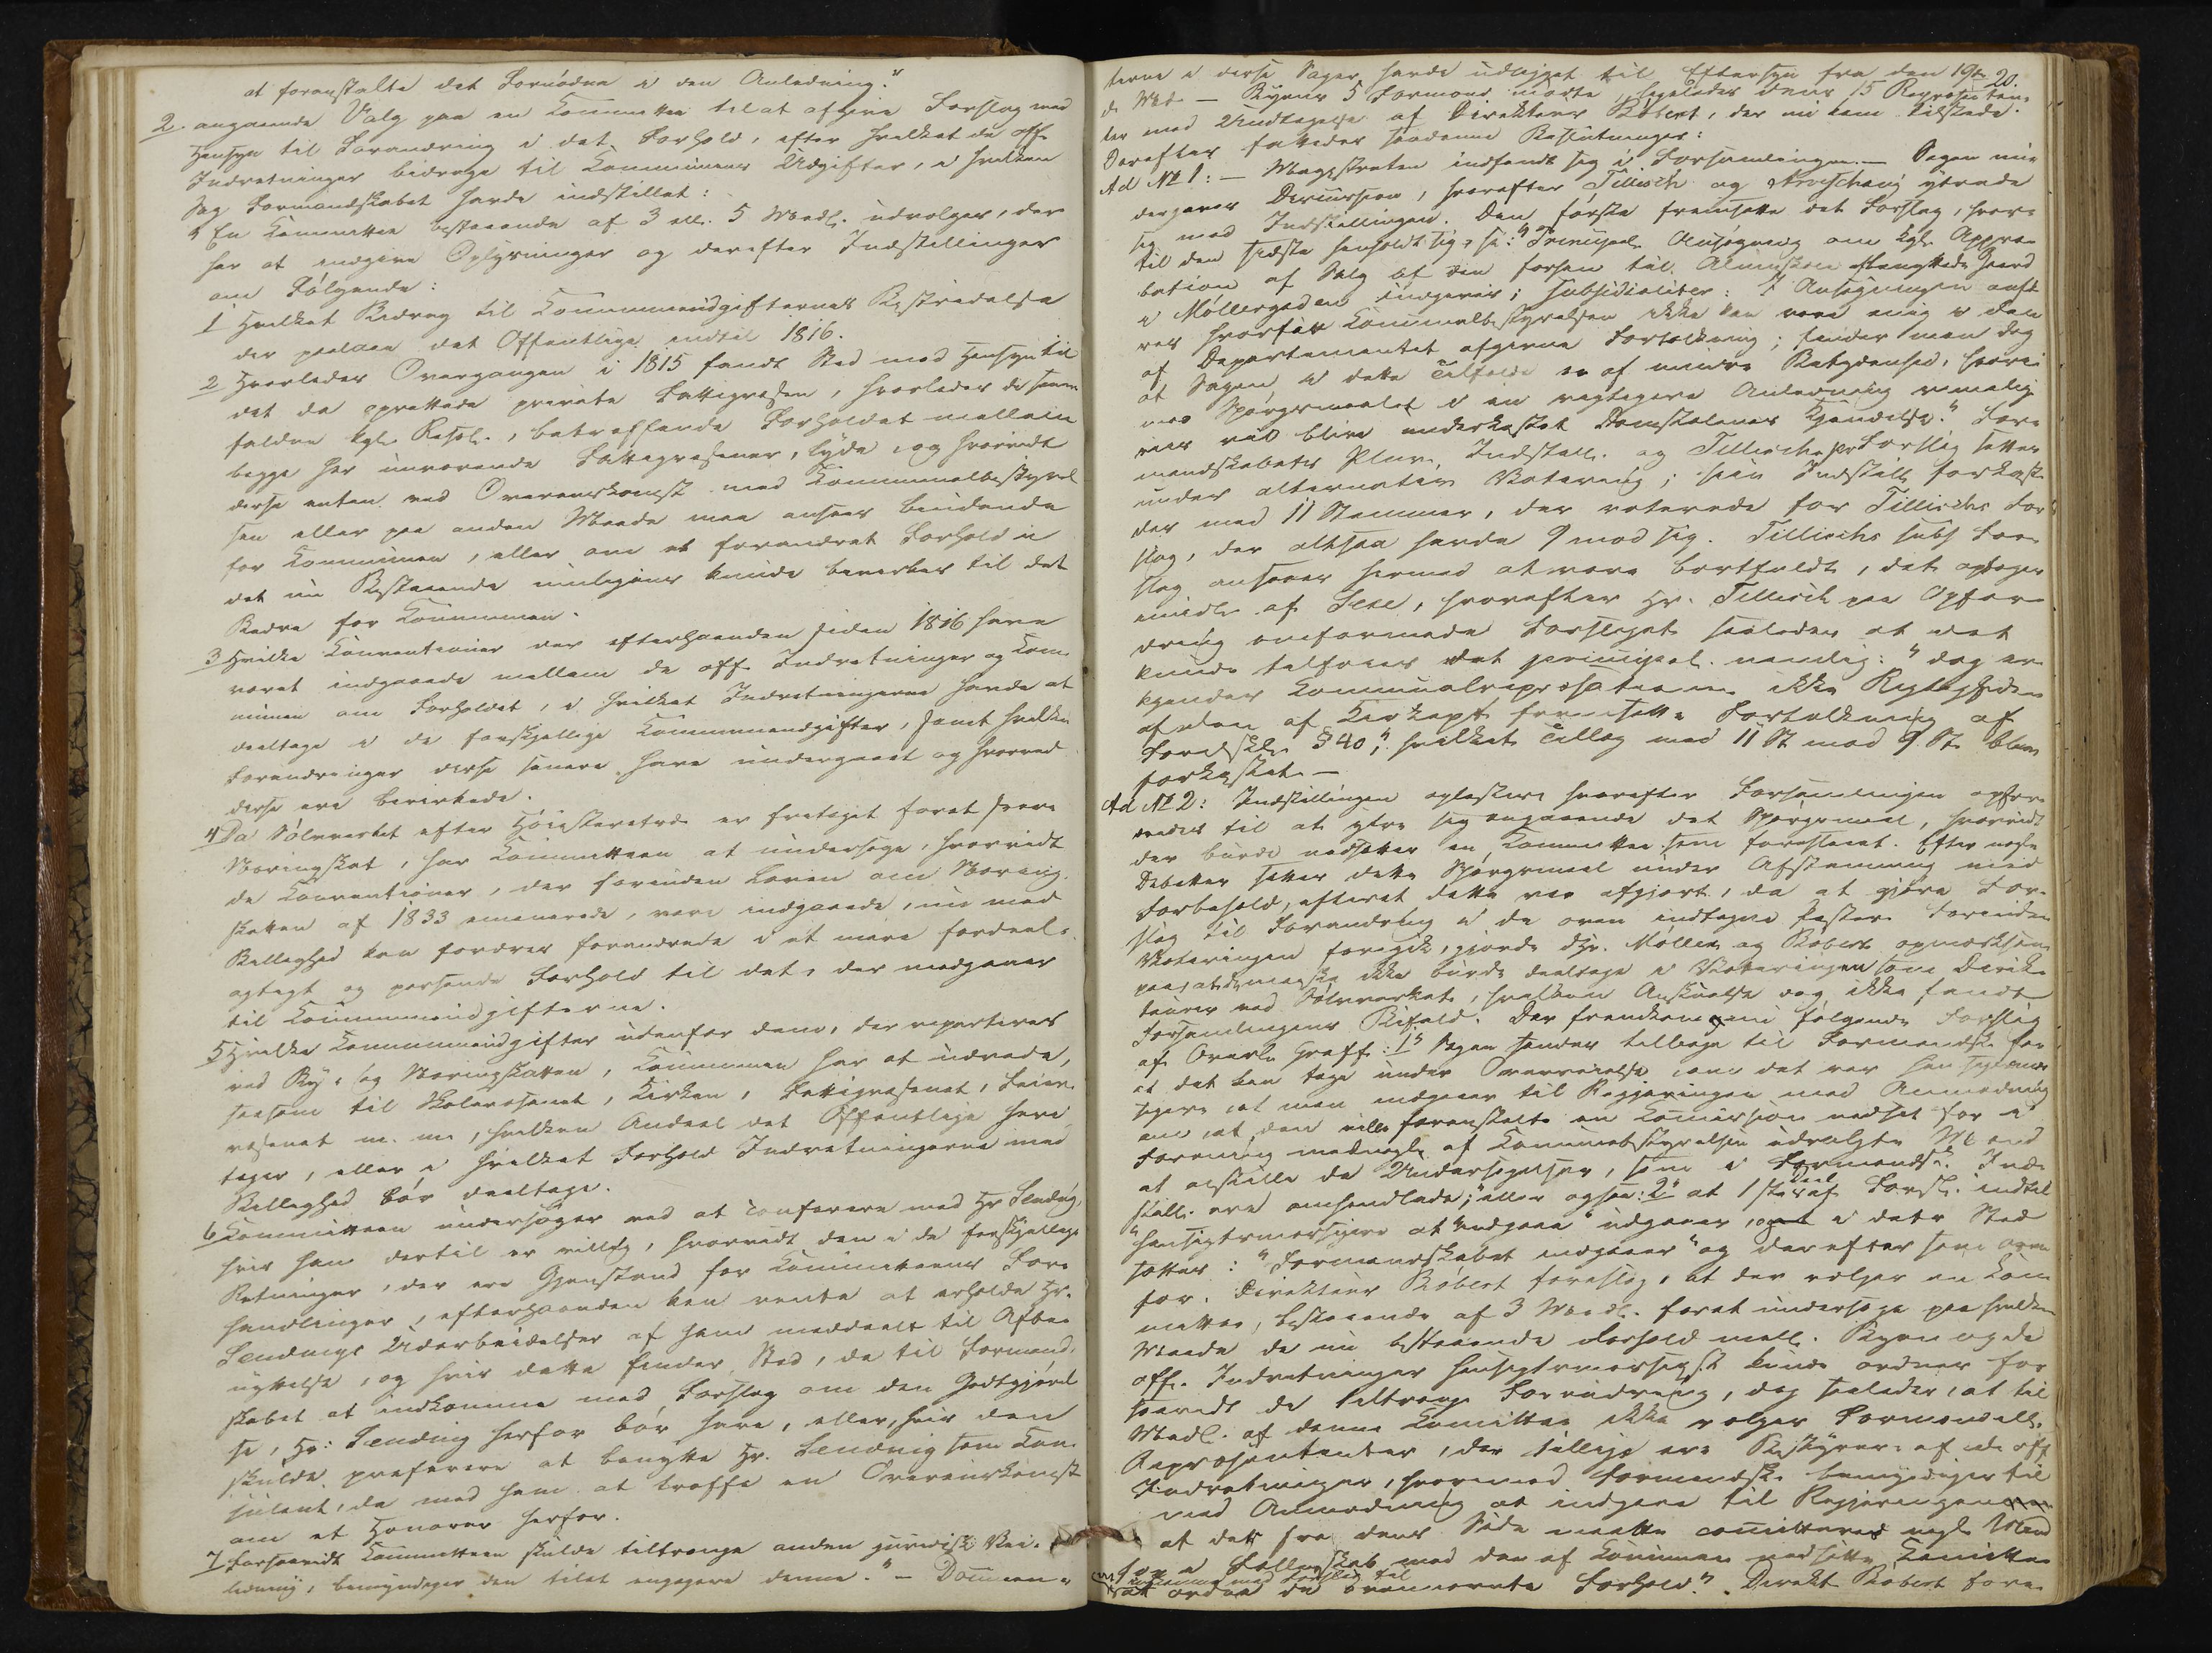 at foranstalte det Fornødne i den Anledning."
2 angaaende Valg paa en Committee til at afgive Forslag med
Hensyn til Forandring i det Forhold, efter hvilket de off.
Indretninger bidrage til Communens Udgifter, i hvilken
Sag Formandskabet havde indstillet:
"En Committee bestaaende af 3 ell. 5 Medl. udvælges, der
har at indgive Oplysninger og derefter Indstillinger
om Følgende:
1 Hvilket Bidrag til Communeudgifternes Bestridelse
der paalaae det Offentlige indtil 1816.
2 Hvorledes Overgangen i 1815 fandt Sted med Hensyn til
det da oprettede private Fattigvæsen, hvorledes de
faldne kgl. Resol., betræffende Forholdet mellem
begge her nuværende Fattigvæsener, lyde, og hvorvidt
disse enten ved Overeenskomst med Communalbestyrel
sen eller paa anden Maade maa ansees bindende
for Communen, eller om et forandret Forhold i
det nu Bestaaende muligens kunde bevirkes til det
Bedre for Communen.
3 Hvilke Conventioner der efterhaanden siden 1816 have
været indgaaede mellem de off. Indretninger og Com-
munen om Forholdet, i hvilket Indretningerne havde at
deeltage i de forskjellige Communeudgifter, samt hvilke
Forandringer disse senere have undergaaet og hvorved
disse ere bevirkede.
4 Da Sølvværket efter Høiesteretsd. er fritaget forat svare
Næringsskat, har Committeen at undersøge, hvorvidt
de Conventioner, der forinden Loven om Næring-
skatten af 1833 emanerede, vare indgaaede, nu med
Billighed kan fordres forandrede i et mere fordeel-
agtigt og passende Forhold til det, der medgaaer
til Communeudgifterne.
5 Hvilke Communeudgifter udenfor dem, der reparteres
ved By- og Næringsskatten, Communen har at udrede,
saasom til Skolevæsenet, Kirken, Fattigvæsenet, Feier-
væsenet m. m., hvilken Andeel det Offentlige heri
tager, eller i hvilket Forhold Indretningerne med
Billighed bør deeltage.
6 Committeen undersøger ved at conferere med Hr Lending,
hvis han dertil er villig, hvorvidt den i de forskjellige
Retninger, der ere Gjenstand for Committeens For-
handlinger, efterhaanden kan vente at erholde Hr.
Lendings Udarbeidelser af ham meddeelt til Afbe-
nyttelse, og hvis dette finder Sted, da til Formand-
skabet at indkomme med Forslag om den Godtgjørel
se, Hr: Lending herfor bør have, eller, hvis den
skulde præferere at benytte Hr. Lending som Con-
sulent, da med ham at træffe en Overeenskomst
om et Honorar herfor.
7 Forsaavidt Committeen skulde tiltrænge anden juridisk Vei-
ledning, bemyndiges den tilat engagere denne." – Documen-
20.
terne i disse Sager havde udligget til Eftersyn fra den 19de
d. Md. – Byens 5 Formænd mødte, ligeledes dens 15 Repræsentan-
ter med Undtagelse af Directeur Bøbert, der nu kom tilstede.
Derefter fattedes saadanne Beslutninger:
Ad № 1: – Magistraten indfandt sig i Forsamlingen. – Sagen un-
dergaves Discussion, hvorefter Tillisch og yttrede
sig mod Indstillingen. Den første fremsatte det Forslag, hvor-
til den sidste henholdt sig, så: "Principal Ansøgning om kgl. Appro-
bation af Salg af den forhen til Almueskole benyttede Gaard
i Møllergaden indgives; subsidialiter: I Ansøgningen anfø-
res hvorfor Communalbestyrelsen ikke kan være enig i den
af Departementet afgivne Fortolkning; finder man dog
at Sagen i dette Tilfælde er af mindre Betydenhed, hvori-
mod Spørgsmaalet i en vigtigere Anledning rimelig-
viis vil blive underkastet Domstolenes Kjendelse." For-
mandskabets Plur. Indstill. og Tillischs pr Forslag sattes
under alternativ Votering; hiin Indstill. forkaste-
des med 11 Stemmer, der voterede for Tillischs For-
slag, der altsaa havde 9 mod sig. Tillischs subs. For-
slag ansaaes hermed at være bortfaldt, det optoges
imidl. af , hvorefter Hr. Tillisch paa Opfor-
dring omformede Forslaget saaledes at det
kunde tilføies det principal. nemlig: "dog er-
kjender Communalrepræsentationen ikke Rigtigheden
af den af Kirkedept. fremsatte Fortolkning af
§ 40", hvilket Tillæg med 11 St. mod 9 St. blev
forkastet. –
Ad № 2: Indstillingen oplæstes hvorefter Forsamlingen opfor-
dredes til at yttre sig angaaende det Spørgsmaal, hvorvidt
der burde nedsættes en Committee som foreslaaet. Efter nogle
Debatter sattes dette Spørgsmaal under Afstemning med
Forbehold, efterat dette var afgjort, da at gjøre For-
slag til Forandring i de oven indtagne Poster. Forinden
Voteringen foregik, gjorde Hr. Møller og Bøbert opmærksom
paa, at de maaske ikke burde deeltage i Voteringen som Direk-
teurer ved Sølvværket, hvilken Anskuelse dog ikke fandt
Forsamlingens Bifald. Der fremkom nu følgende Forslag
af Overl. Graff: 1° Sagen sendes tilbage til Formandsk. for
at det kan tage under Overveielse, om det var hensigtsmæs-
sigere at man indgaaer til Regjeringen med Anmodning
om, at den ville foranstalte en Commission nedsat for i
Forening med nogle af Communebestyrelsen udvalgte Mænd
at anstille de Undersøgelser, som i Formandsk. Ind-
still. ere omhandlede;" eller ogsaa: 2° at 1ste Deel af Forsl. indtil
"hensigtsmæssigere at "indgaae" udgaaer, i dets Sted
sættes: "Formandskabet indgaaer" og derefter som oven
for. Directeur Bøbert foreslog, at der vælges en Com-
mittee, bestaaende af 3 Medl. forat undersøge paa hvilken
Maade de nu bestaaende Forhold mell. Byen og de
off. Indretninger hensigtsmæssigst kunde ordnes for
saavidt de tiltrænge Forandring, dog saaledes, at til
Medl. af denne Comittee ikke vælges Formænd ell.
Repræsentanter, der tillige ere Bestyrere af de off
Indretninger, hvorimod Formandsk. bemyndiges til
med Anmodning at indgaae til Regjeringen
at dett fra dens Side maatte comitteres nogle Mænd
for i Fællesskab med den af Communen nedsatte Comittee
indkomme med Forslag til
at ordne de ovennævnte Forhold." Direkt. Bøbert fore-